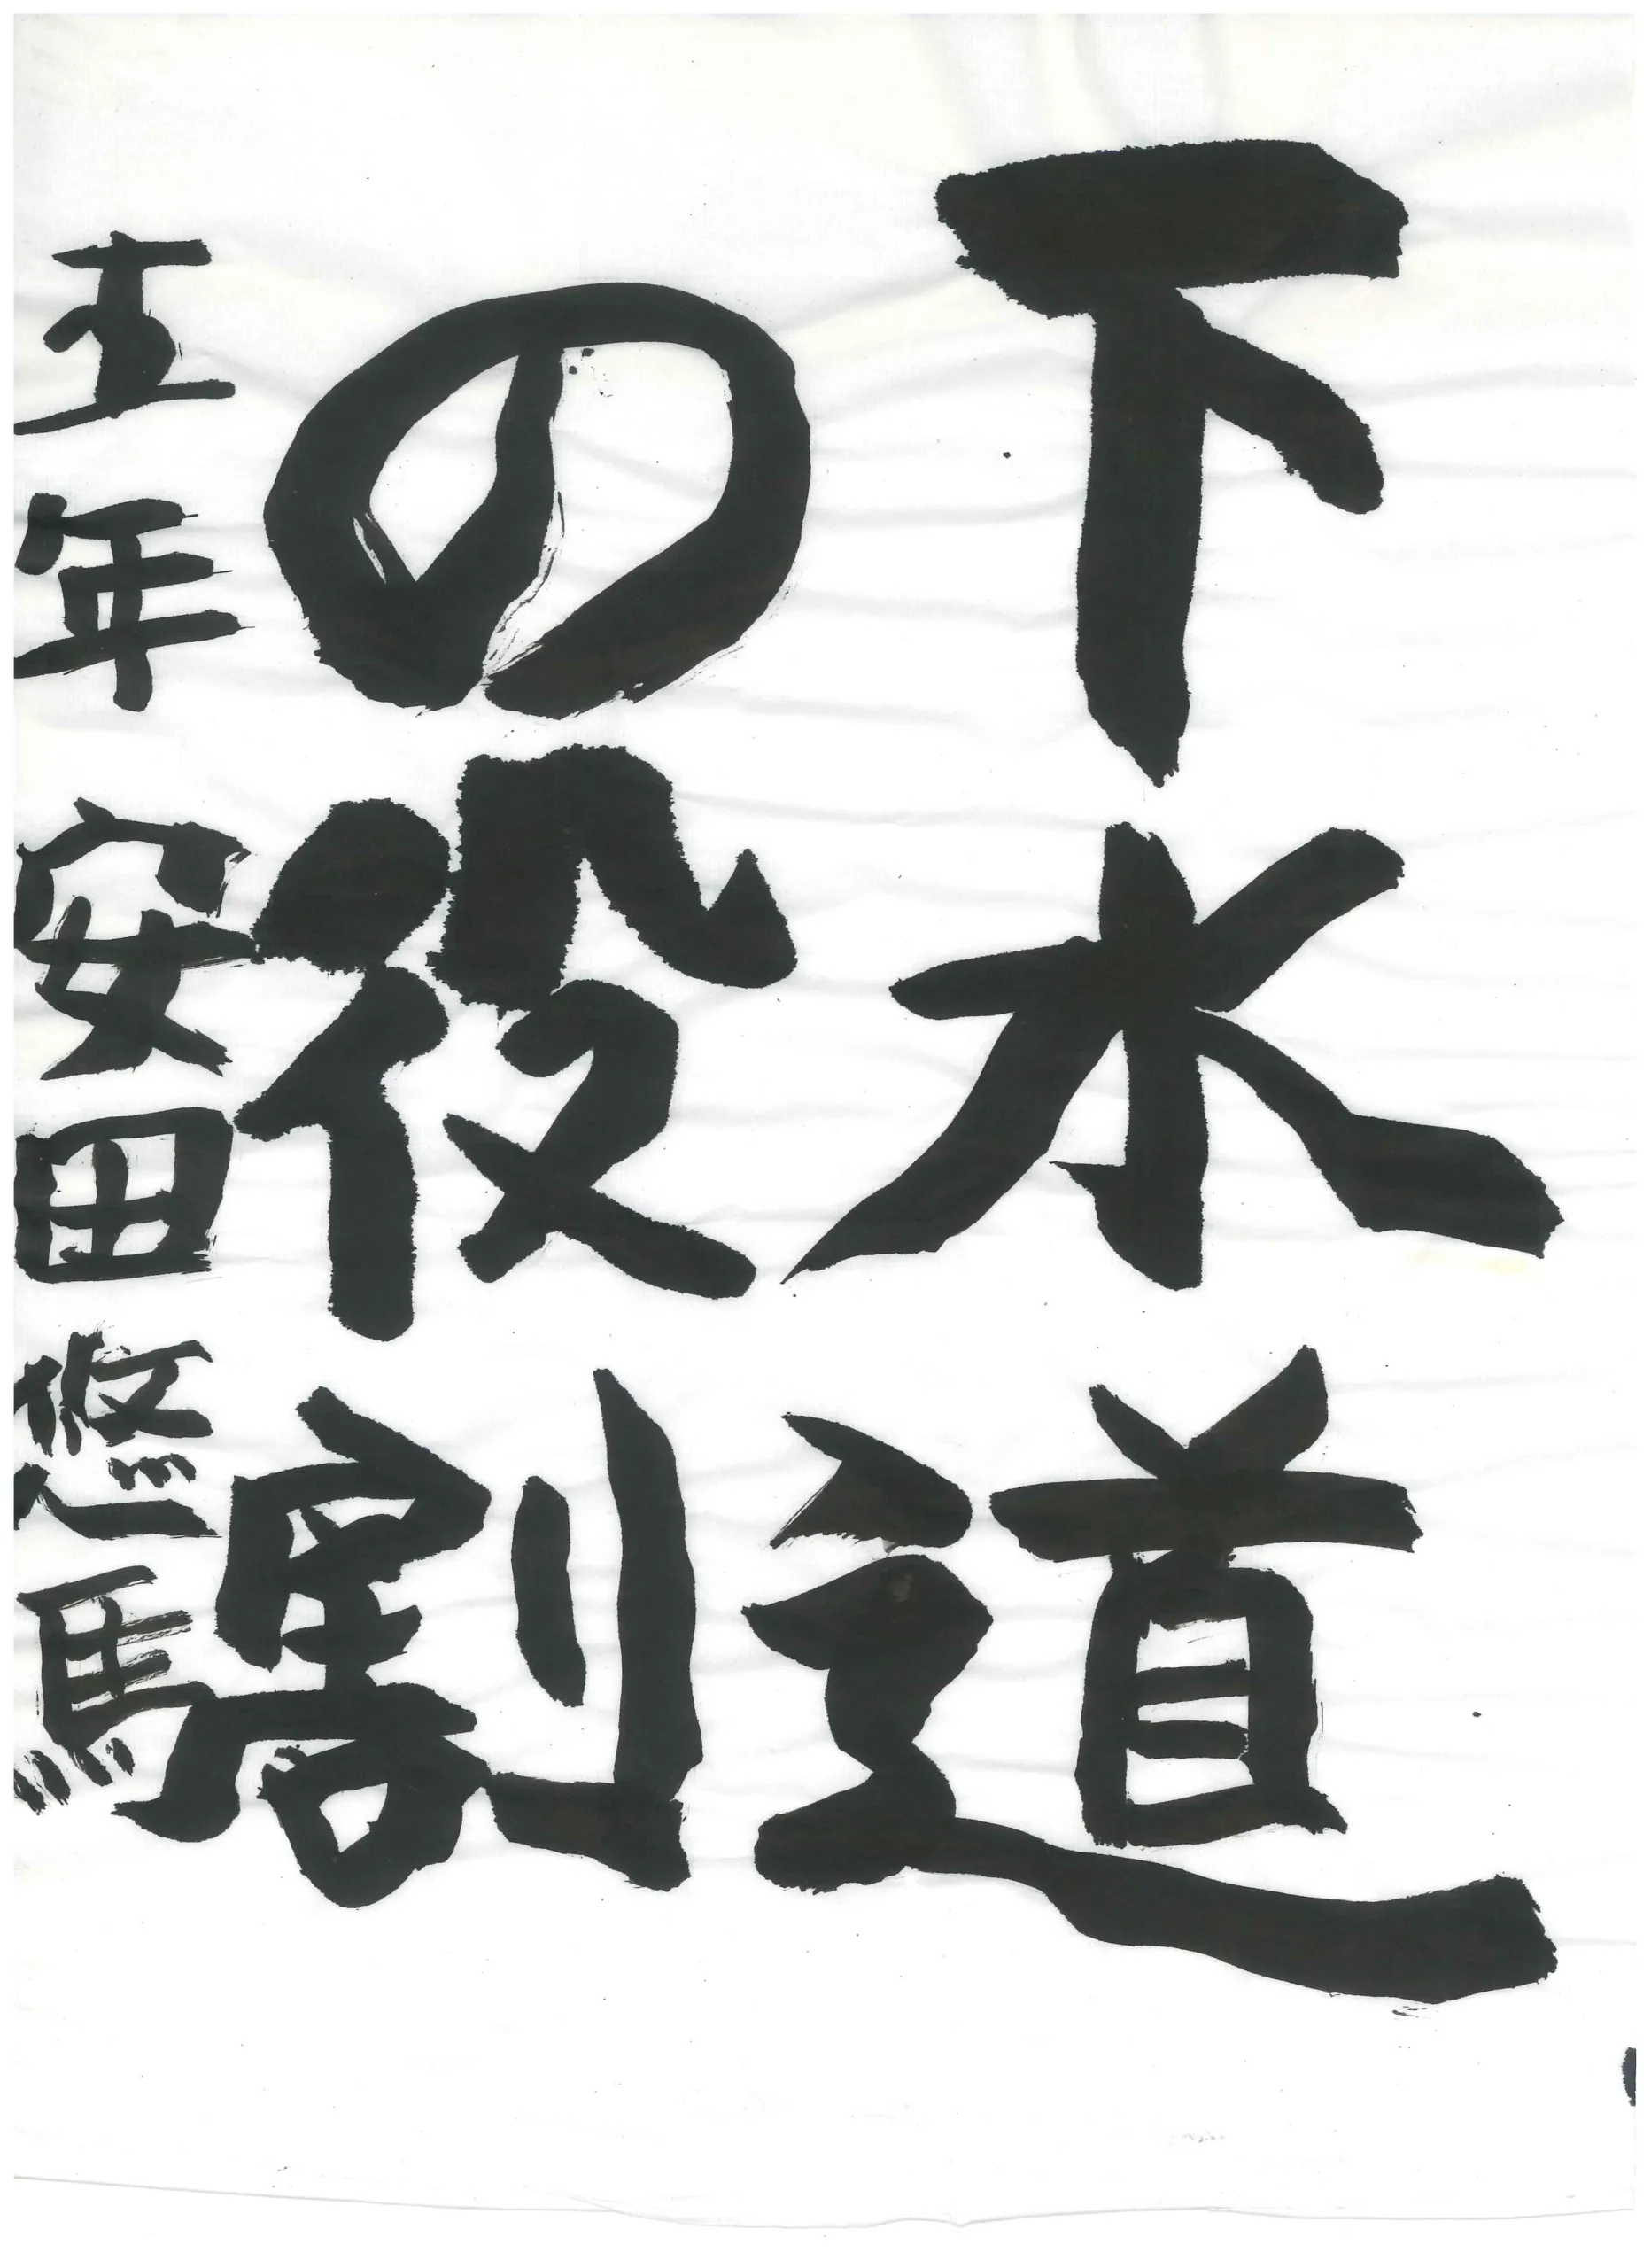 下水道
の役割
五年 安田 悠馬